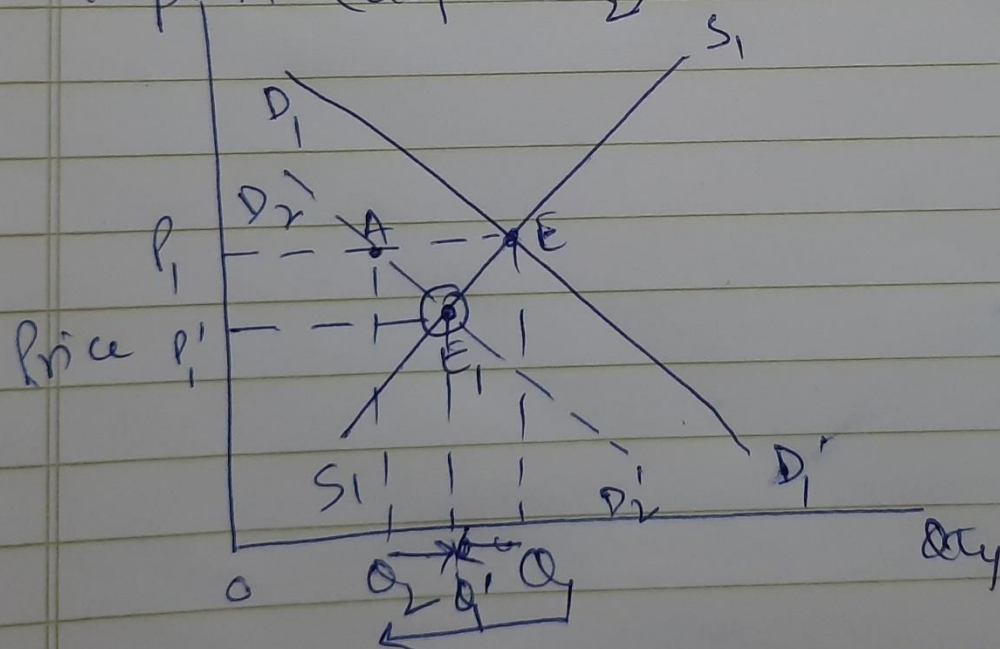 S1
D1
D2'
A
P1
E
Price P1'
E1
S1
D1'
D2'
Qty
0
Q2
Q1'
Q1